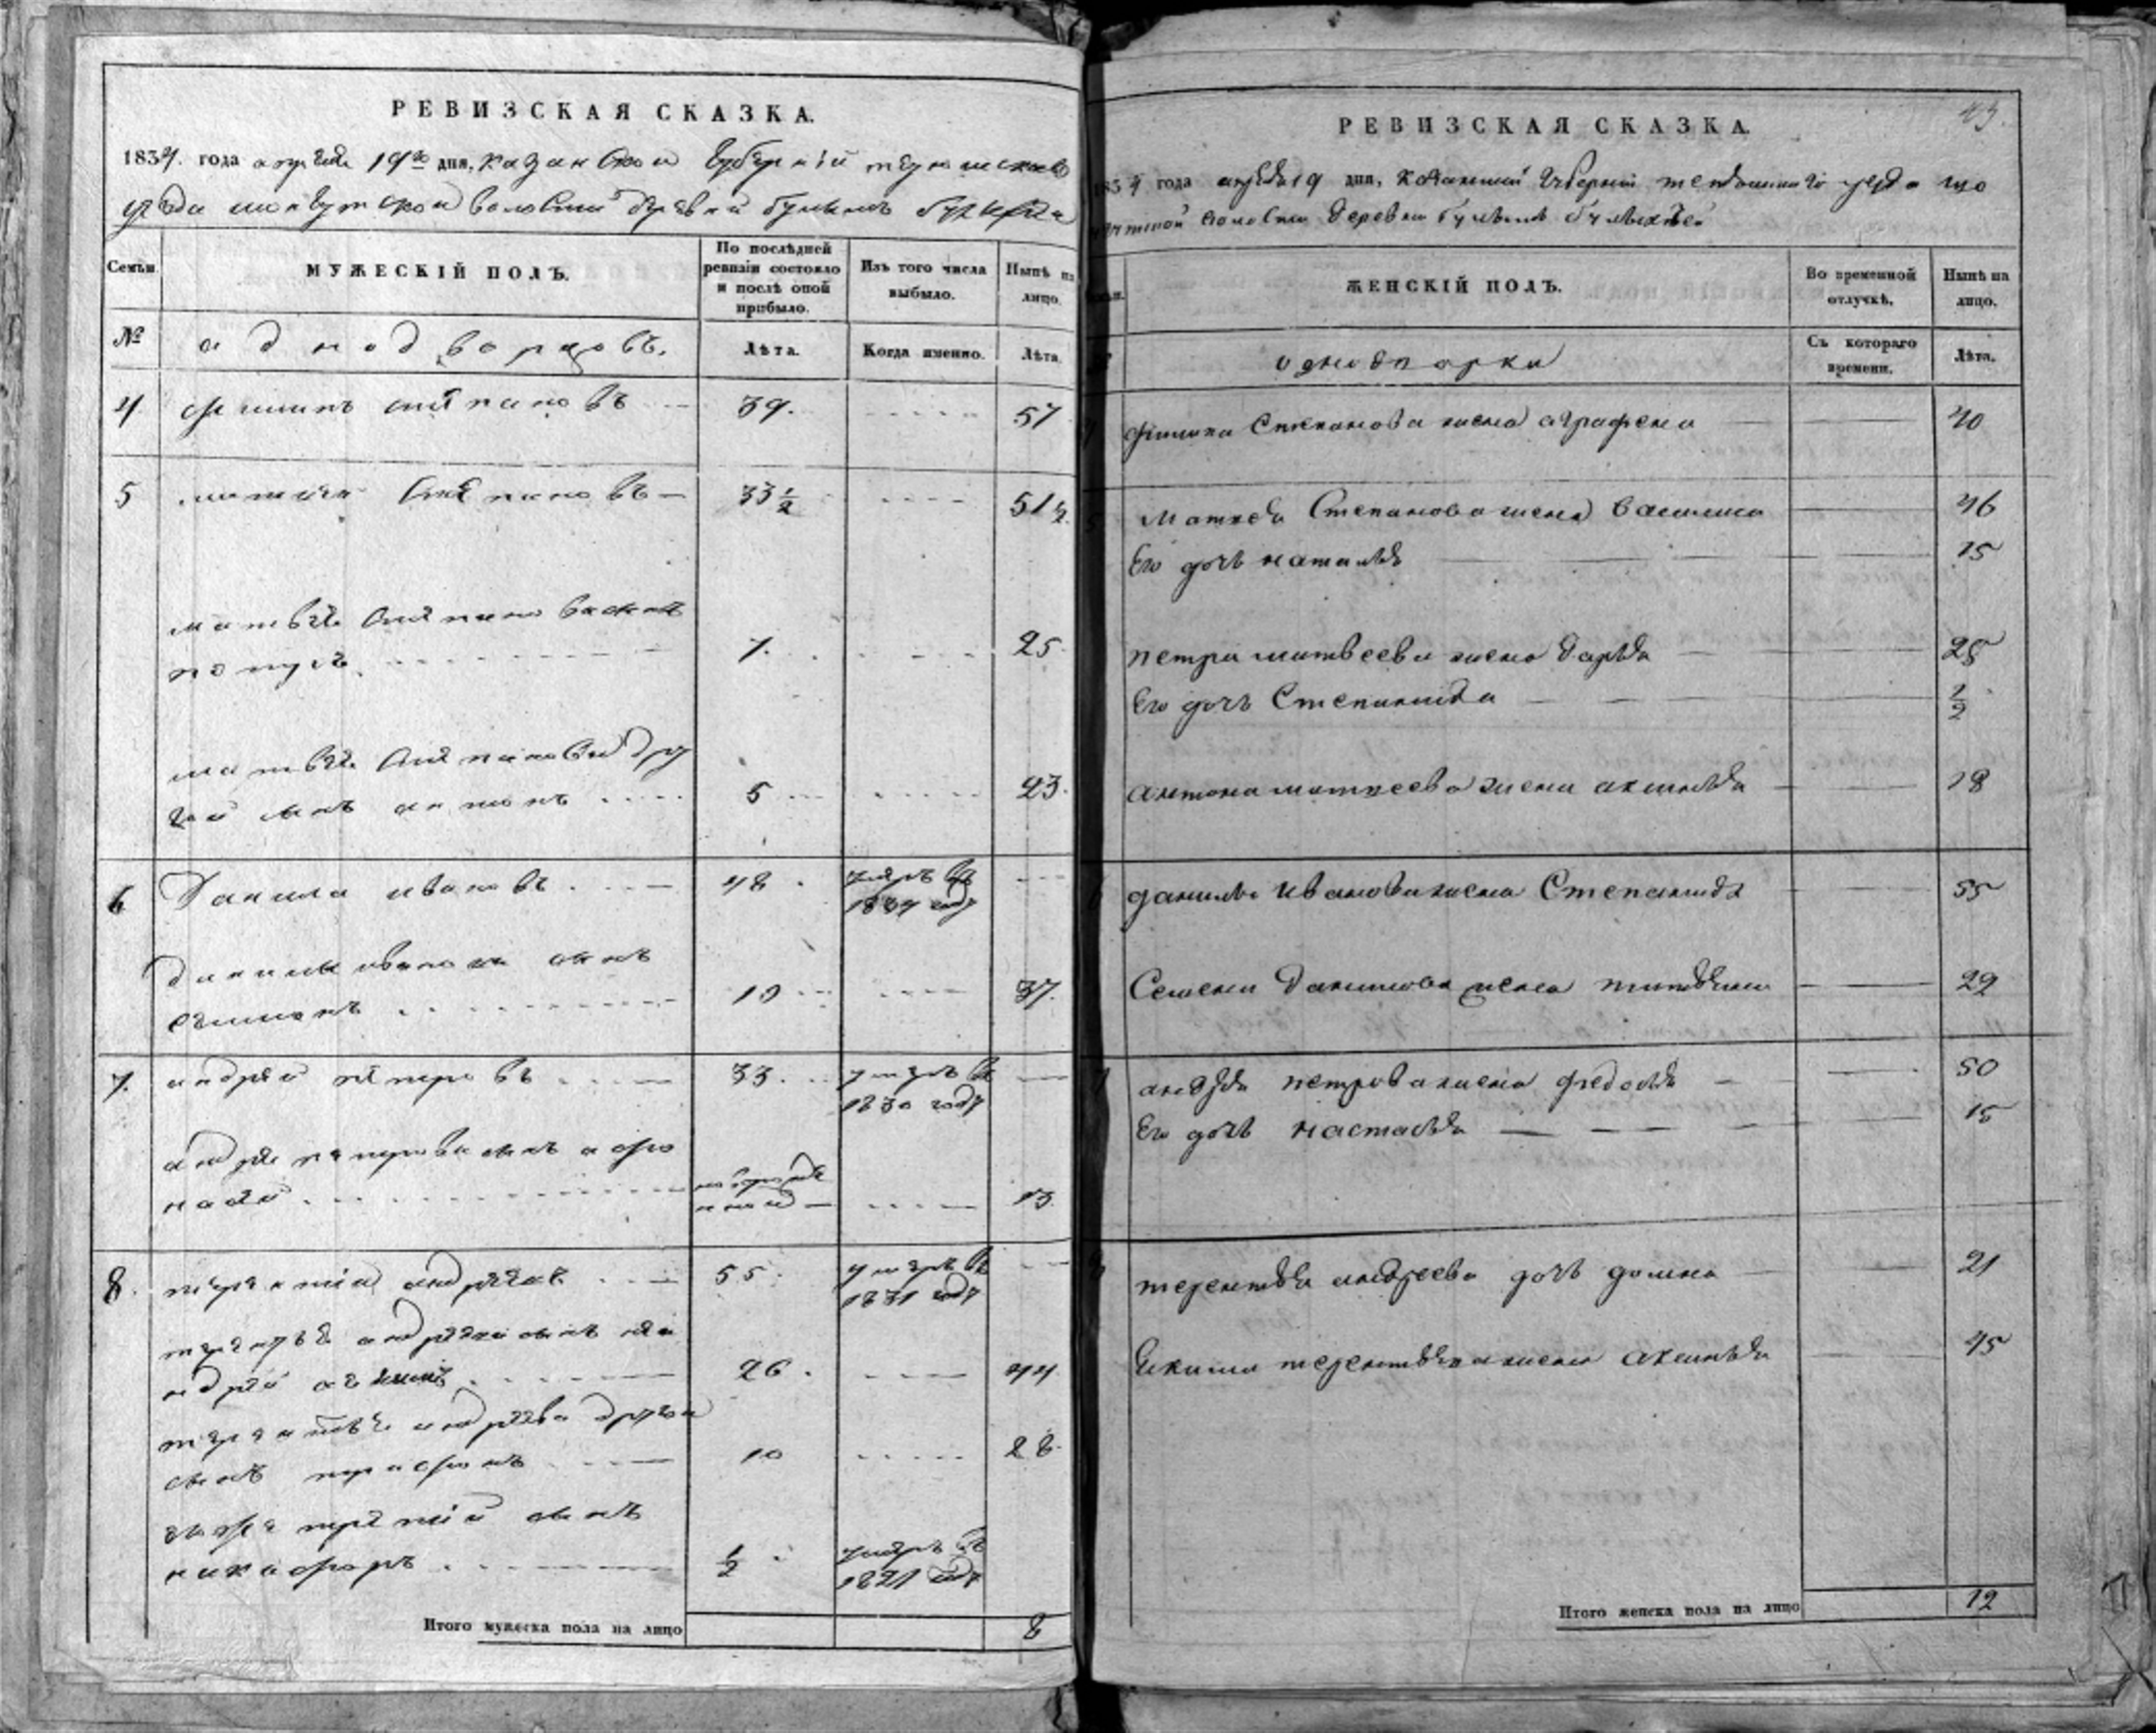 РЕВИЗСКАЯ СКАЗКА.
1834. года апреля 19го дня, казанской губернии
уезда волости деревни
Семьи. МУЖЕСКІЙ ПОЛЪ. По послѣдней ревизіи состояло и послѣ оной прибыло. Изъ того числа выбыло. Нынѣ на лицо.
№ аднодворцовъ. Лѣта. Когда именно. Лѣта.
4 филипъ степановъ 39. 57
5 матвей степановъ 33 1/2 51 1/2
матвея степанова сынъ
петръ. 7. 25
матвея степанова дру
гой сынъ антонъ 5 23.
6 Данила ивановъ. 48 умеръ въ
1834 году
данилы иванова сынъ
семенъ 19 37.
7. андрей петровъ 33. умеръ въ
1830 году
андрея петрова сынъ афо
насей новорожденной 13.
8. терентий андреевъ 55. умеръ въ
1831 году
терентья андреева сынъ
26. 44
терентья андреева другой
сынъ 10 28.
терентий сынъ
никифоръ. 1/2 умеръ въ
1821 году
Итого мужеска пола на лицо 8
43.
РЕВИЗСКАЯ СКАЗКА.
1834 года апреля 19 дня, казанской губернии уезда
волости деревни
Семьи. ЖЕНСКІЙ ПОЛЪ. Во временной отлучкѣ. Нынѣ на лицо.
однодворки Съ котораго времени. Лѣта.
филипа Степанова жена аграфена 40
5 Матвея Степанова жена Василиса 46
Его дочь наталья 15
петра матвеева жена дарья 25
Его дочь Степанида 1/2
антона матвеева жена аксинья 18
6 данилы Иванова жена Степанида 55
Семена Данилова жена 29
7 андрея петрова жена федосья 50
Его дочь настасья 15
8 терентья андреева дочь домна 21
терентьева жена аксинья 45
Итого женска пола на лицо 12